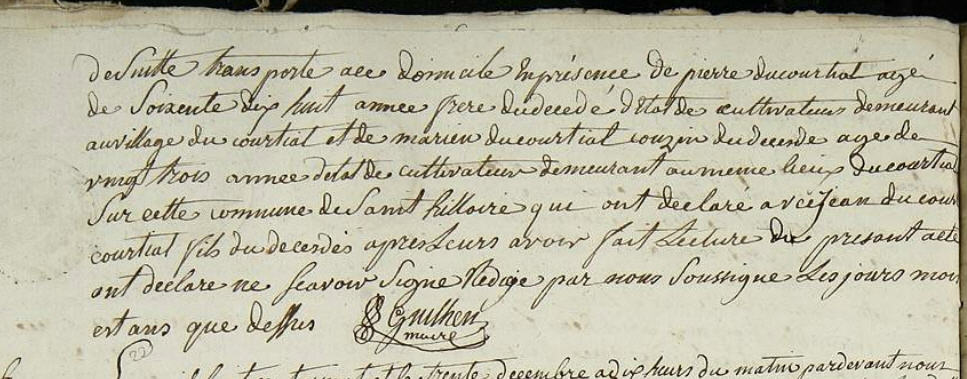 de Suitte transporte aee domicile Enprésence de pierre ducourtial agé
de Soixente dix huit annee frere dudecedé d'Etat de cultivateur demeurant
auvillage du courtial et de marien ducourtial couzin dudecede age de
vingt trois annee detat de cultivateur demeurant aumeme lieux ducourtial
Sur cette commune de Saint hilloire qui ont declaré avec jean du cour
courtial fils du decesdés apres Leurs avoir fait Lecture du presant acte
ont declare ne scavoir Signe Redige par nous Soussigne Les jours mois
est ans que dessus Guilhen
maire
22
trente decembre a dix heurs du matin pardevant nous